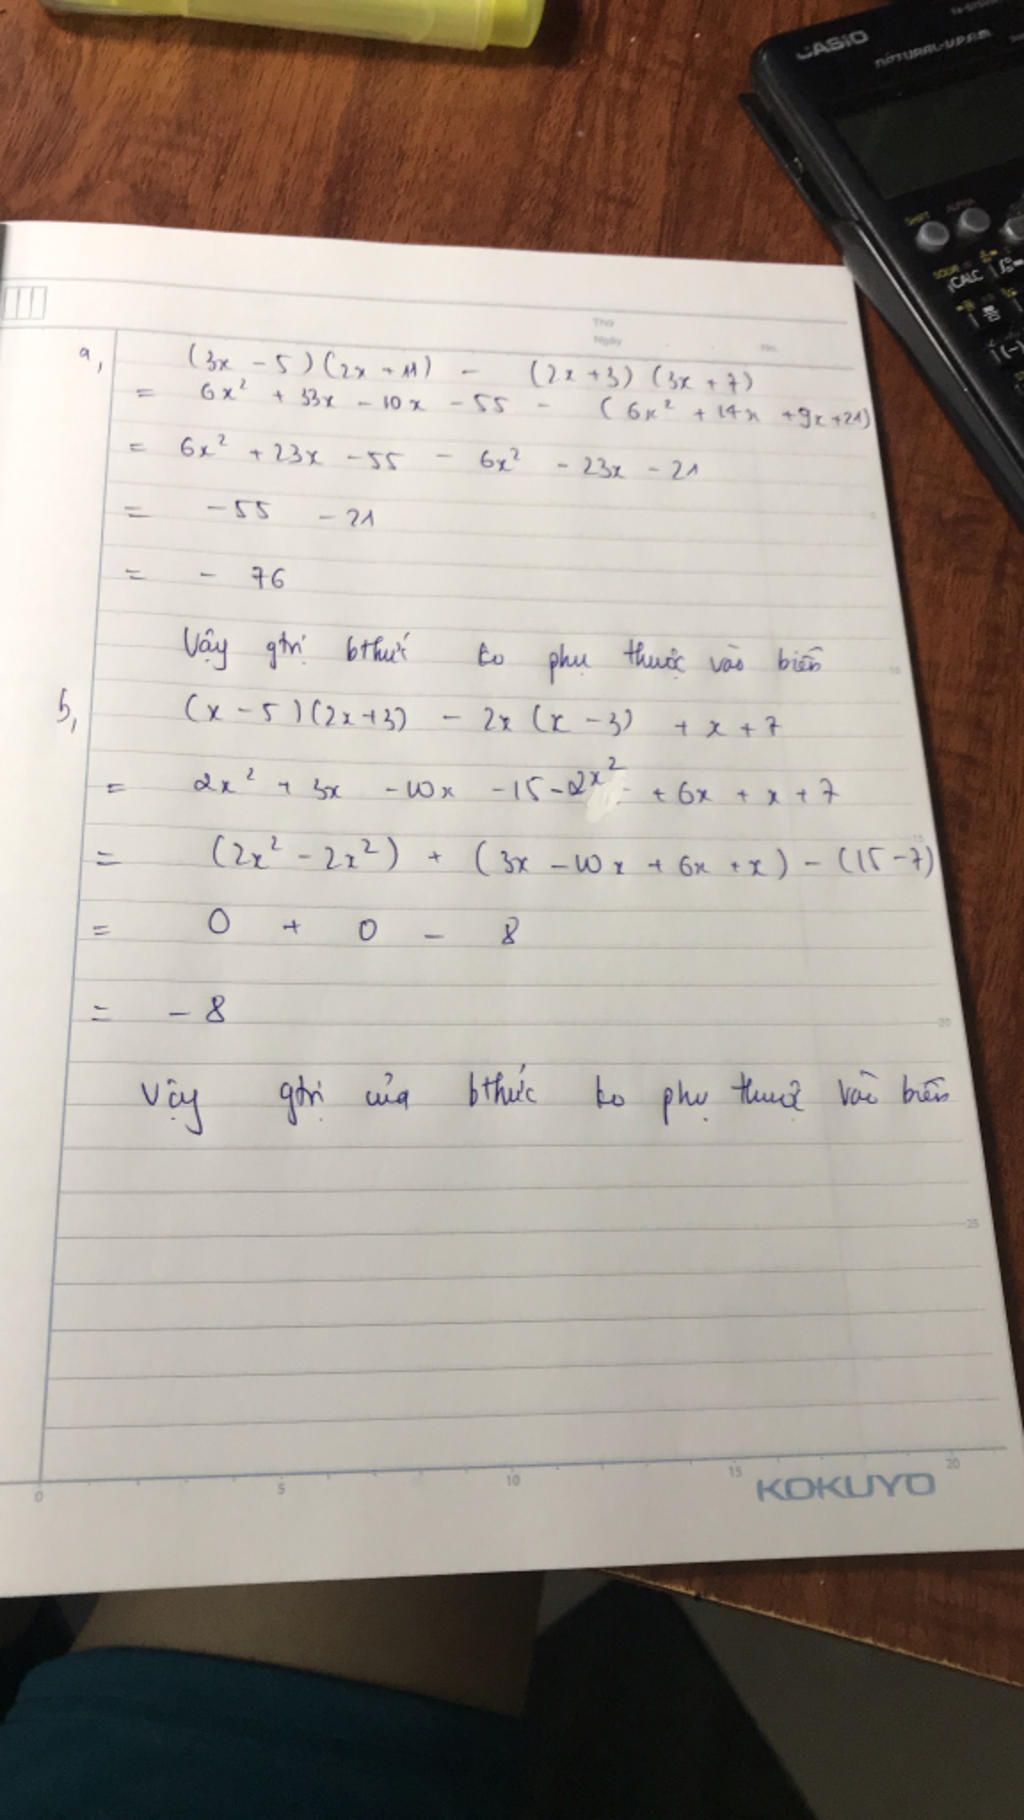 CASIO
NATURAL-V.P.A.M.
SHIFT ALPHA
SOLVE
CALC
(-)
Thứ
Ngày No.
a, (3x - 5)(2x + 11) - (2x + 3)(3x + 7)
= 6x² + 33x - 10x - 55 - (6x² + 14x + 9x + 21)
= 6x² + 23x - 55 - 6x² - 23x - 21
= -55 - 21
= - 76
Vậy gtrị bthức ko phụ thuộc vào biến
b, (x - 5)(2x + 3) - 2x (x - 3) + x + 7
= 2x² + 3x - 10x - 15 - 2x² + 6x + x + 7
= (2x² - 2x²) + (3x - 10x + 6x + x) - (15 - 7)
= 0 + 0 - 8
= - 8
Vậy gtrị của bthức ko phụ thuộc vào biến
5
10
15
20
25
0 5 10 15 20
KOKUYO